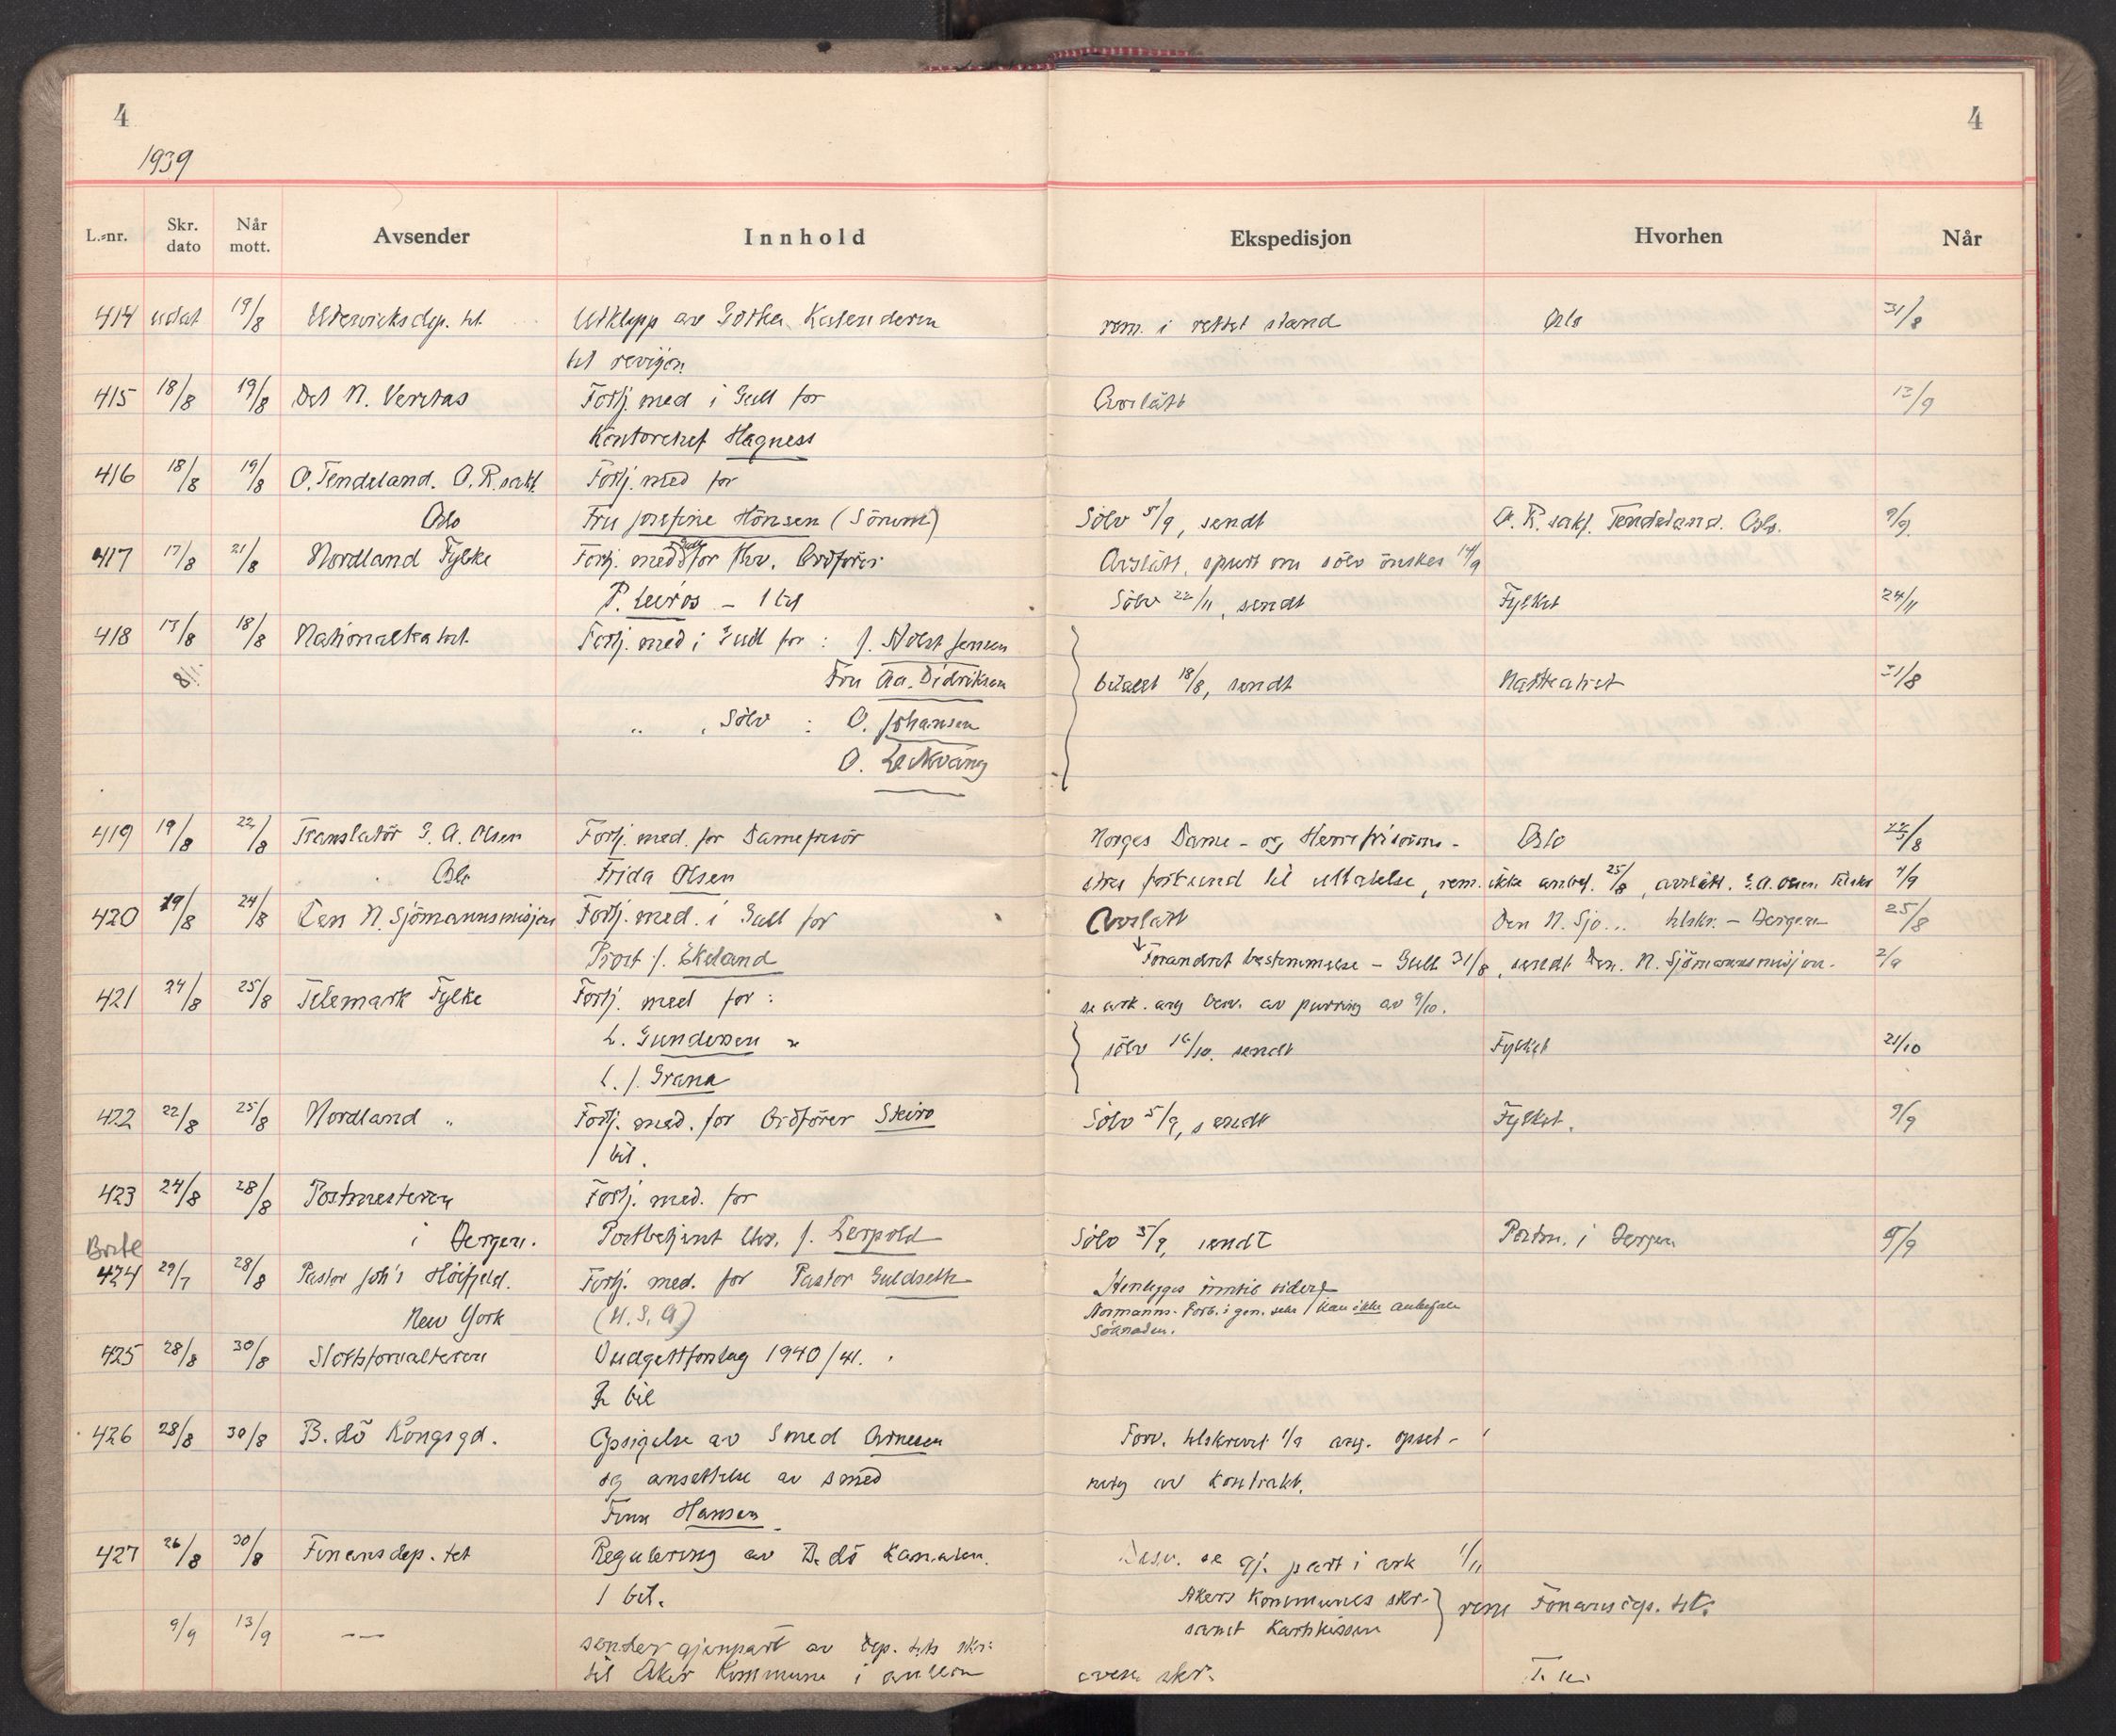 4 4
1939
L.-nr. Skr. dato Når mott. Avsender Innhold Ekspedisjon Hvorhen Når
414 udat 19/8 Utenriksdep. tet. Utklipp av Gotha Kalenderen rem. i rettet stand Oslo 31/8
til revisjon
415 18/8 19/8 Det N. Veritas Fortj. med i Gull for Avslått 13/9
Kontorchef Hagness
416 18/8 19/8 O. Tendeland. O.R.sakf. Fortj. med for
Oslo Fru Josefine Hönsen (Sörum) Sölv 5/9, sendt O.R. sakf. Tendeland. Oslo. 9/9
417 17/8 21/8 Nordland Fylke Fortj. med for fhv. Ordförer Avslått, spurt om sölv önskes 14/9
P. Leiros - 1 bil Sölv 22/11, sendt Fylket 24/11
418 17/8 18/8 Nationalteatret. Fortj. med i Gull for : J. Holst Jensen
Fru Aa. Didriksen bilagt 18/8, sendt Nattheatret 21/8
" " Sölv : O. Johansen
O. Leikvang
419 19/8 22/8 Translatör G. A. Olsen Fortj. med. for Damefrisör Norges Dame- og Herrefrisörm- Oslo 22/8
Oslo Frida Olsen stres forbund til uttalelse, rem. ikke anbef. 25/8, avslått. G.A. Olsen 4/9
420 19/8 24/8 Den N. Sjömannsmisjon Fortj. med. i Gull for Avslått Den N. Sjö... tilskr. - Bergen 25/8
Prost J. Ekeland Forandret bestemmelse - Gull 31/8, sendt Den. N. Sjömannsmisjon. 2/9
421 24/8 25/8 Telemark Fylke Fortj. med for : se ark. ang besv. av purring av 9/10.
L. Gundersen sölv 16/10. sendt Fylket 21/10
L. J. Grana
422 22/8 25/8 Nordland " Fortj. med. for Ordförer Skeiro Sölv 5/9, sendt Fylket. 9/9
1 bil.
423 24/8 28/8 Postmesteren Fortj. med. for
i Bergen. Postbetjent Chr. J. Lerpold Sölv 5/9, sendt Postm. i Bergen 9/9
Borte
424 29/7 28/8 Pastor Joh's Höifjeld. Fortj. med. for Pastor Guldseth Henlegges inntil videre
New York (U.S.A) Normanns-Forb. i gen. sekr kan ikke anbefale
Söknaden.
425 28/8 30/8 Slottsforvalteren Budgettforslag 1940/41.
2 bil
426 28/8 30/8 B.dö Kongsgd. Opsigelse av Smed Arnesen Forv. tilskrevet 1/9 ang. opset-
og ansettelse av smed ning av Kontrakt.
Finn Hansen
427 26/8 30/8 Finansdep. tet Regulering av B.dö Kanalen. Besv. se gj. part i ark 1/11
1 bil. Akers Kommunes skr. rem Finansdep. tet.
9/9 13/9 — sender gjenpart av dep. tets skr. samt Kartskissen
til Aker Kommune i anledn oven. skr.